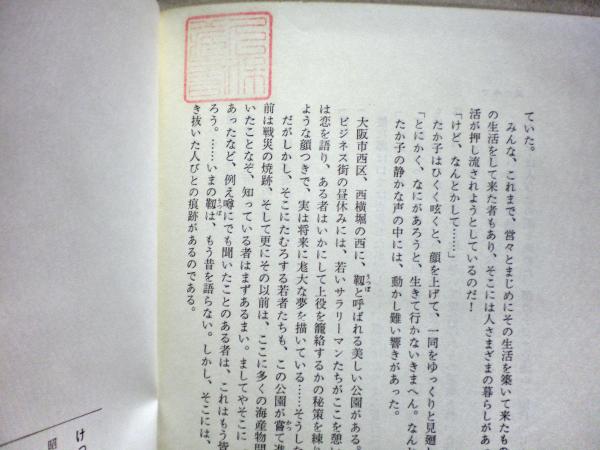 ていた。
みんな、これまで、営々とまじめにその生活を築いて来たもの
の生活をして来た者もあり、そこには人さまざまの暮らしがあっ
活が押し流されようとしているのだ！
「けど、なんとかして……」
たか子はひくく呟くと、顔を上げて、一同をゆっくりと見廻し
「とにかく、なにがあろうと、生きて行かないきまへん。なんと
たか子の静かな声の中には、動かし難い響きがあった。
大阪市西区、西横堀の西に、靱と呼ばれる美しい公園がある。
うつぼ
ビジネス街の昼休みには、若いサラリーマンたちがここを憩い
は恋を語り、ある者はいかにして上役を籠絡するかの秘策を練り
ような顔つきで、実は将来に尨大な夢を描いている……そうした
だがしかし、そこにたむろする若者たちも、この公園が嘗て進
かつ
前は戦災の焼跡、そして更にその以前は、ここに多くの海産物問
いたことなぞ、知っている者はまずあるまい。ましてやそこに
あったなど、例え噂にでも聞いたことのある者は、これはもう皆
ろう。……いまの靱は、もう昔を語らない。しかし、そこには、
うつぼ
き抜いた人びとの痕跡があるのである。
けっ
昭